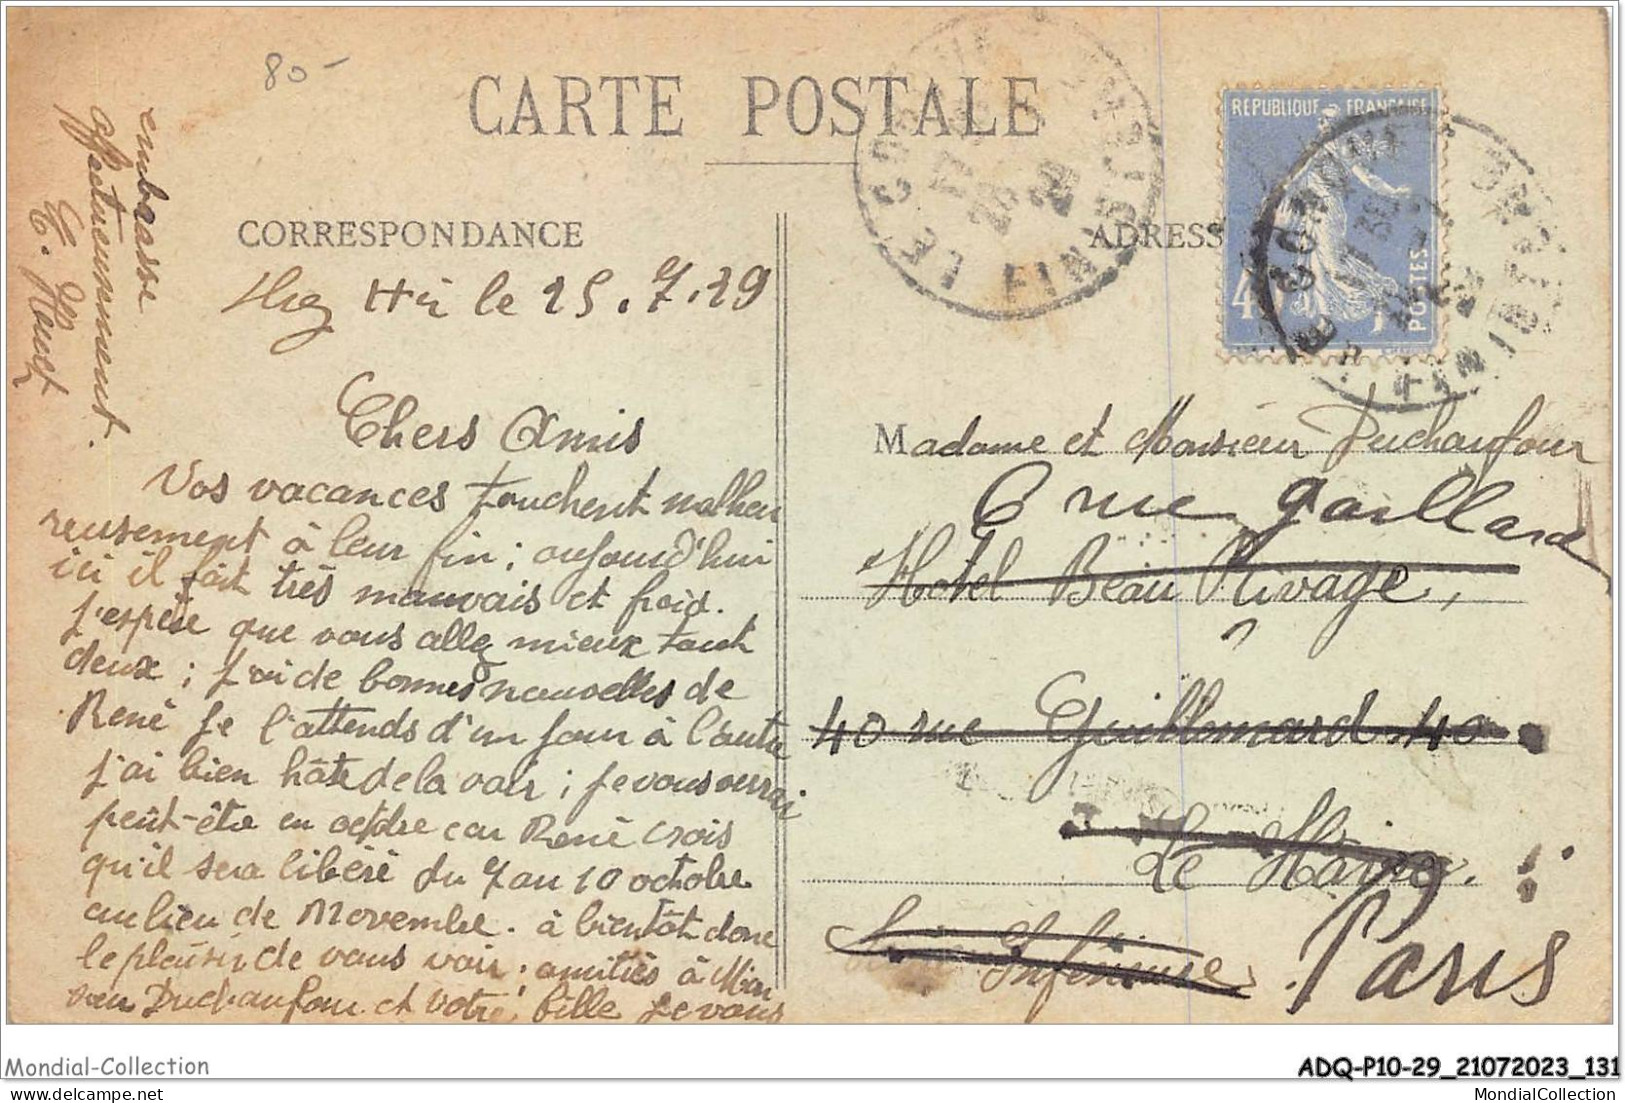 80-
CARTE POSTALE
CORRESPONDANCE
ADRESS
REPUBLIQUE FRANÇAISE
POSTES
LE CONQUET
FINISTERE
le 25.7.29
Chers Amis
Vos vacances touchent malheu
reusement à leur fin; aujourd'hui
ici il fait très mauvais et froid.
J'espère que vous allez mieux tout
deux; j'ai de bonnes nouvelles de
René je l'attends d'un jour à l'autre
j'ai bien hâte de la voir; je vous verrai
peut-être en octobre car René crois
qu'il sera libéré du 7 au 10 octobre
au lieu de Novembre. à bientôt donc
le plaisir de vous voir; amitiés à Mon
sieur Duchaufour et votre fille je vous
embrasse
affectueusement.
Madame et Monsieur Duchaufour
6 rue gaillard
Hotel Beau Rivage,
40 rue Guillemard 40
Le Havre.
Seine Inférieure
Paris
Mondial-Collection
ADQ-P10-29_21072023_131
MondialCollection